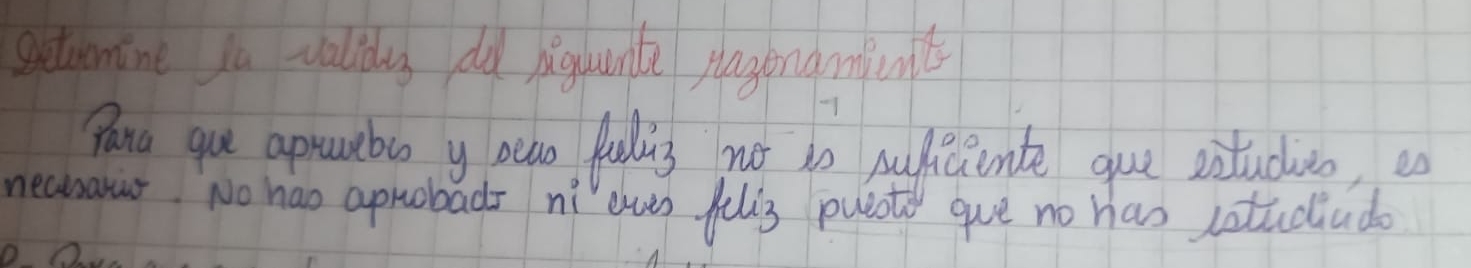 Determine la validez del siguiente razonamiento
Para que apruebes y seas feliz no es suficiente que estudies, es
necesario. No has aprobado ni eres feliz puesto que no has estudiado